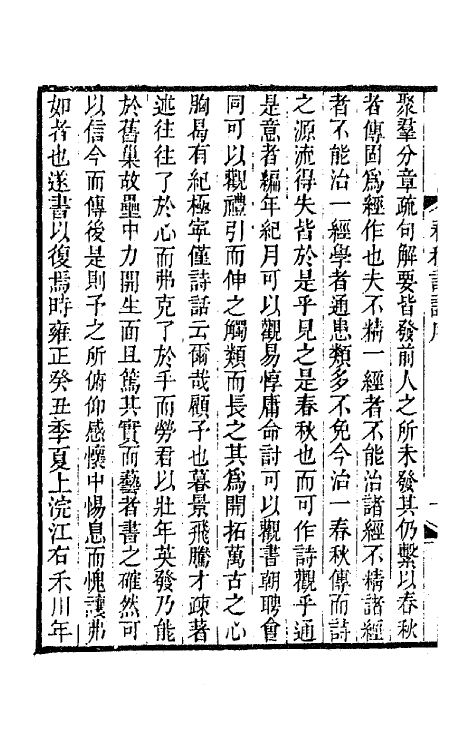 聚羣分章疏句解要皆發前人之所未發其仍繫以春秋
者傳固爲經作也夫不精一經者不能治諸經不精諸經
者不能治一經學者通患類多不免今治一春秋傳而詩
之源流得失皆於是乎見之是春秋也而可作詩觀乎通
是意者編年紀月可以觀易惇庸命討可以觀書朝聘會
同可以觀禮引而伸之觸類而長之其爲開拓萬古之心
胸曷有紀極寧僅詩話云爾哉顧予也暮景飛騰才疎著
述往往了於心而弗克了於手而勞君以壯年英發乃能
於舊巢故壘中力開生面且篤其實而藝者書之確然可
以信今而傳後是則予之所俯仰感懷中惕息而愧讓弗
如者也遂書以復焉時雍正癸丑季夏上浣江右禾川年